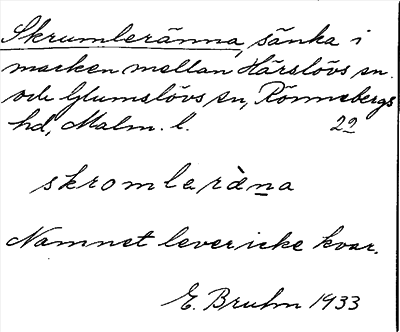 Skrumleränna, sänka i
marken mellan Härslövs sn.
och Glumslövs sn, Rönnebergs
hd, Malm. l. 22
skromleràna
Namnet lever icke kvar.
E. Bruhn 1933